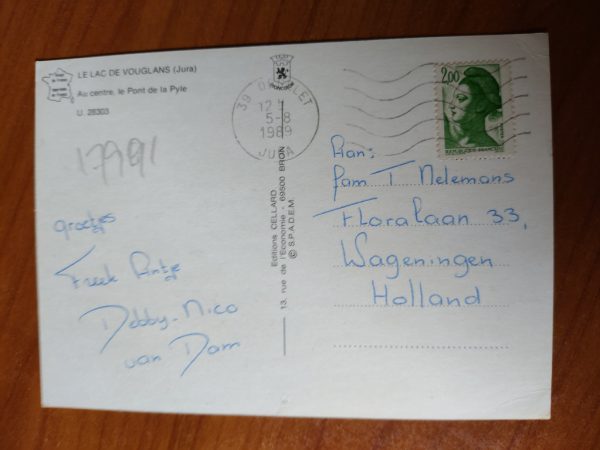 LE LAC DE VOUGLANS (Jura)
Au centre, le Pont de la Pyle
U. 28303
17991
groetjes
Freek Antje
Debby-Nico
van Dam
Editions CELLARD
13, rue de l'Economie - 69500 BRON
© S.P.A.D.E.M.
39
5-8
1989
JURA
2,00
REPUBLIQUE FRANÇAISE
Aan:
fam T Nelemans
Floralaan 33,
Wageningen
Holland